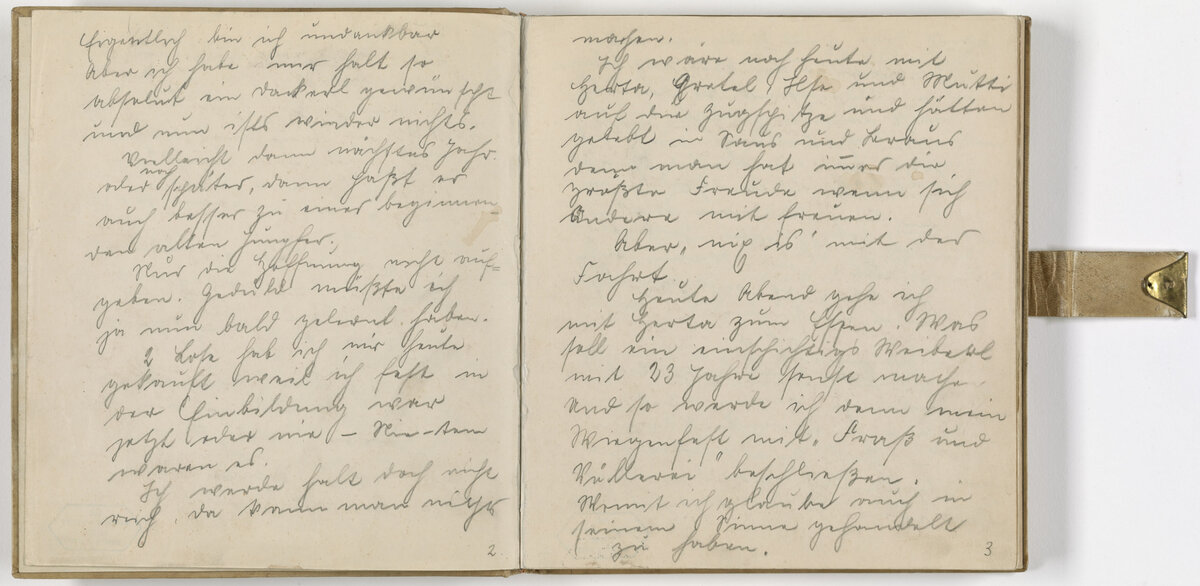 Eigentlich bin ich undankbar
Aber ich habe mir halt so
absolut ein Dackerl gewünscht
und nun ists wieder nichts.
Vielleicht dann nächstes Jahr
oder noch später, dann paßt es
auch besser zu einer beginnen
den alten Jungfer.
Nur die Hoffnung nicht auf=
geben. Geduld müßte ich
ja nun bald gelernt haben.
2 Lose hab ich mir heute
gekauft weil ich fest in
der Einbildung war
jetzt oder nie – Nie-ten
waren es.
Ich werde halt doch nicht
reich. Da kann man nichts
2
machen.
Ich wäre noch heute mit
Herta, Gretel, Ilse und Mutti
auf die Zugspitze und hätten
gelebt in Saus und Braus
denn man hat immer die
größte Freude wenn sich
Andere mit freuen.
Aber „nix is" mit der
Fahrt.
Heute Abend gehe ich
mit Herta zum Essen. Was
soll ein einschichtigs Weiberl
mit 23 Jahre sonst mache.
Und so werde ich denn mein
Wiegenfest mit „Fraß und
Völlerei" beschließen.
Womit ich glaube auch in
seinem Sinne gehandelt
zu haben.
3